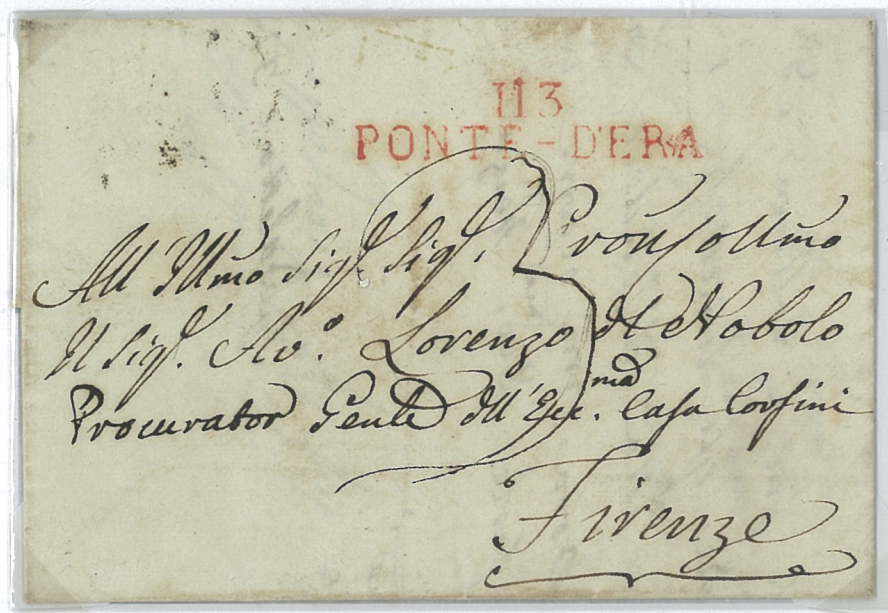 113
PONTE-D'ERA
All' Illmo Sigr. Sigr. Pron Collmo
Il Sigr. Avo. Lorenzo del Nobolo
Procurator Genle dell' Eccma. Casa Corsini
Firenze